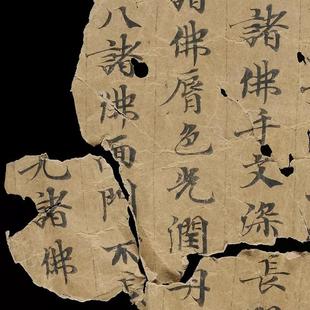 諸佛手文深長
諸佛脣色光潤丹
八諸佛面門不
九諸佛